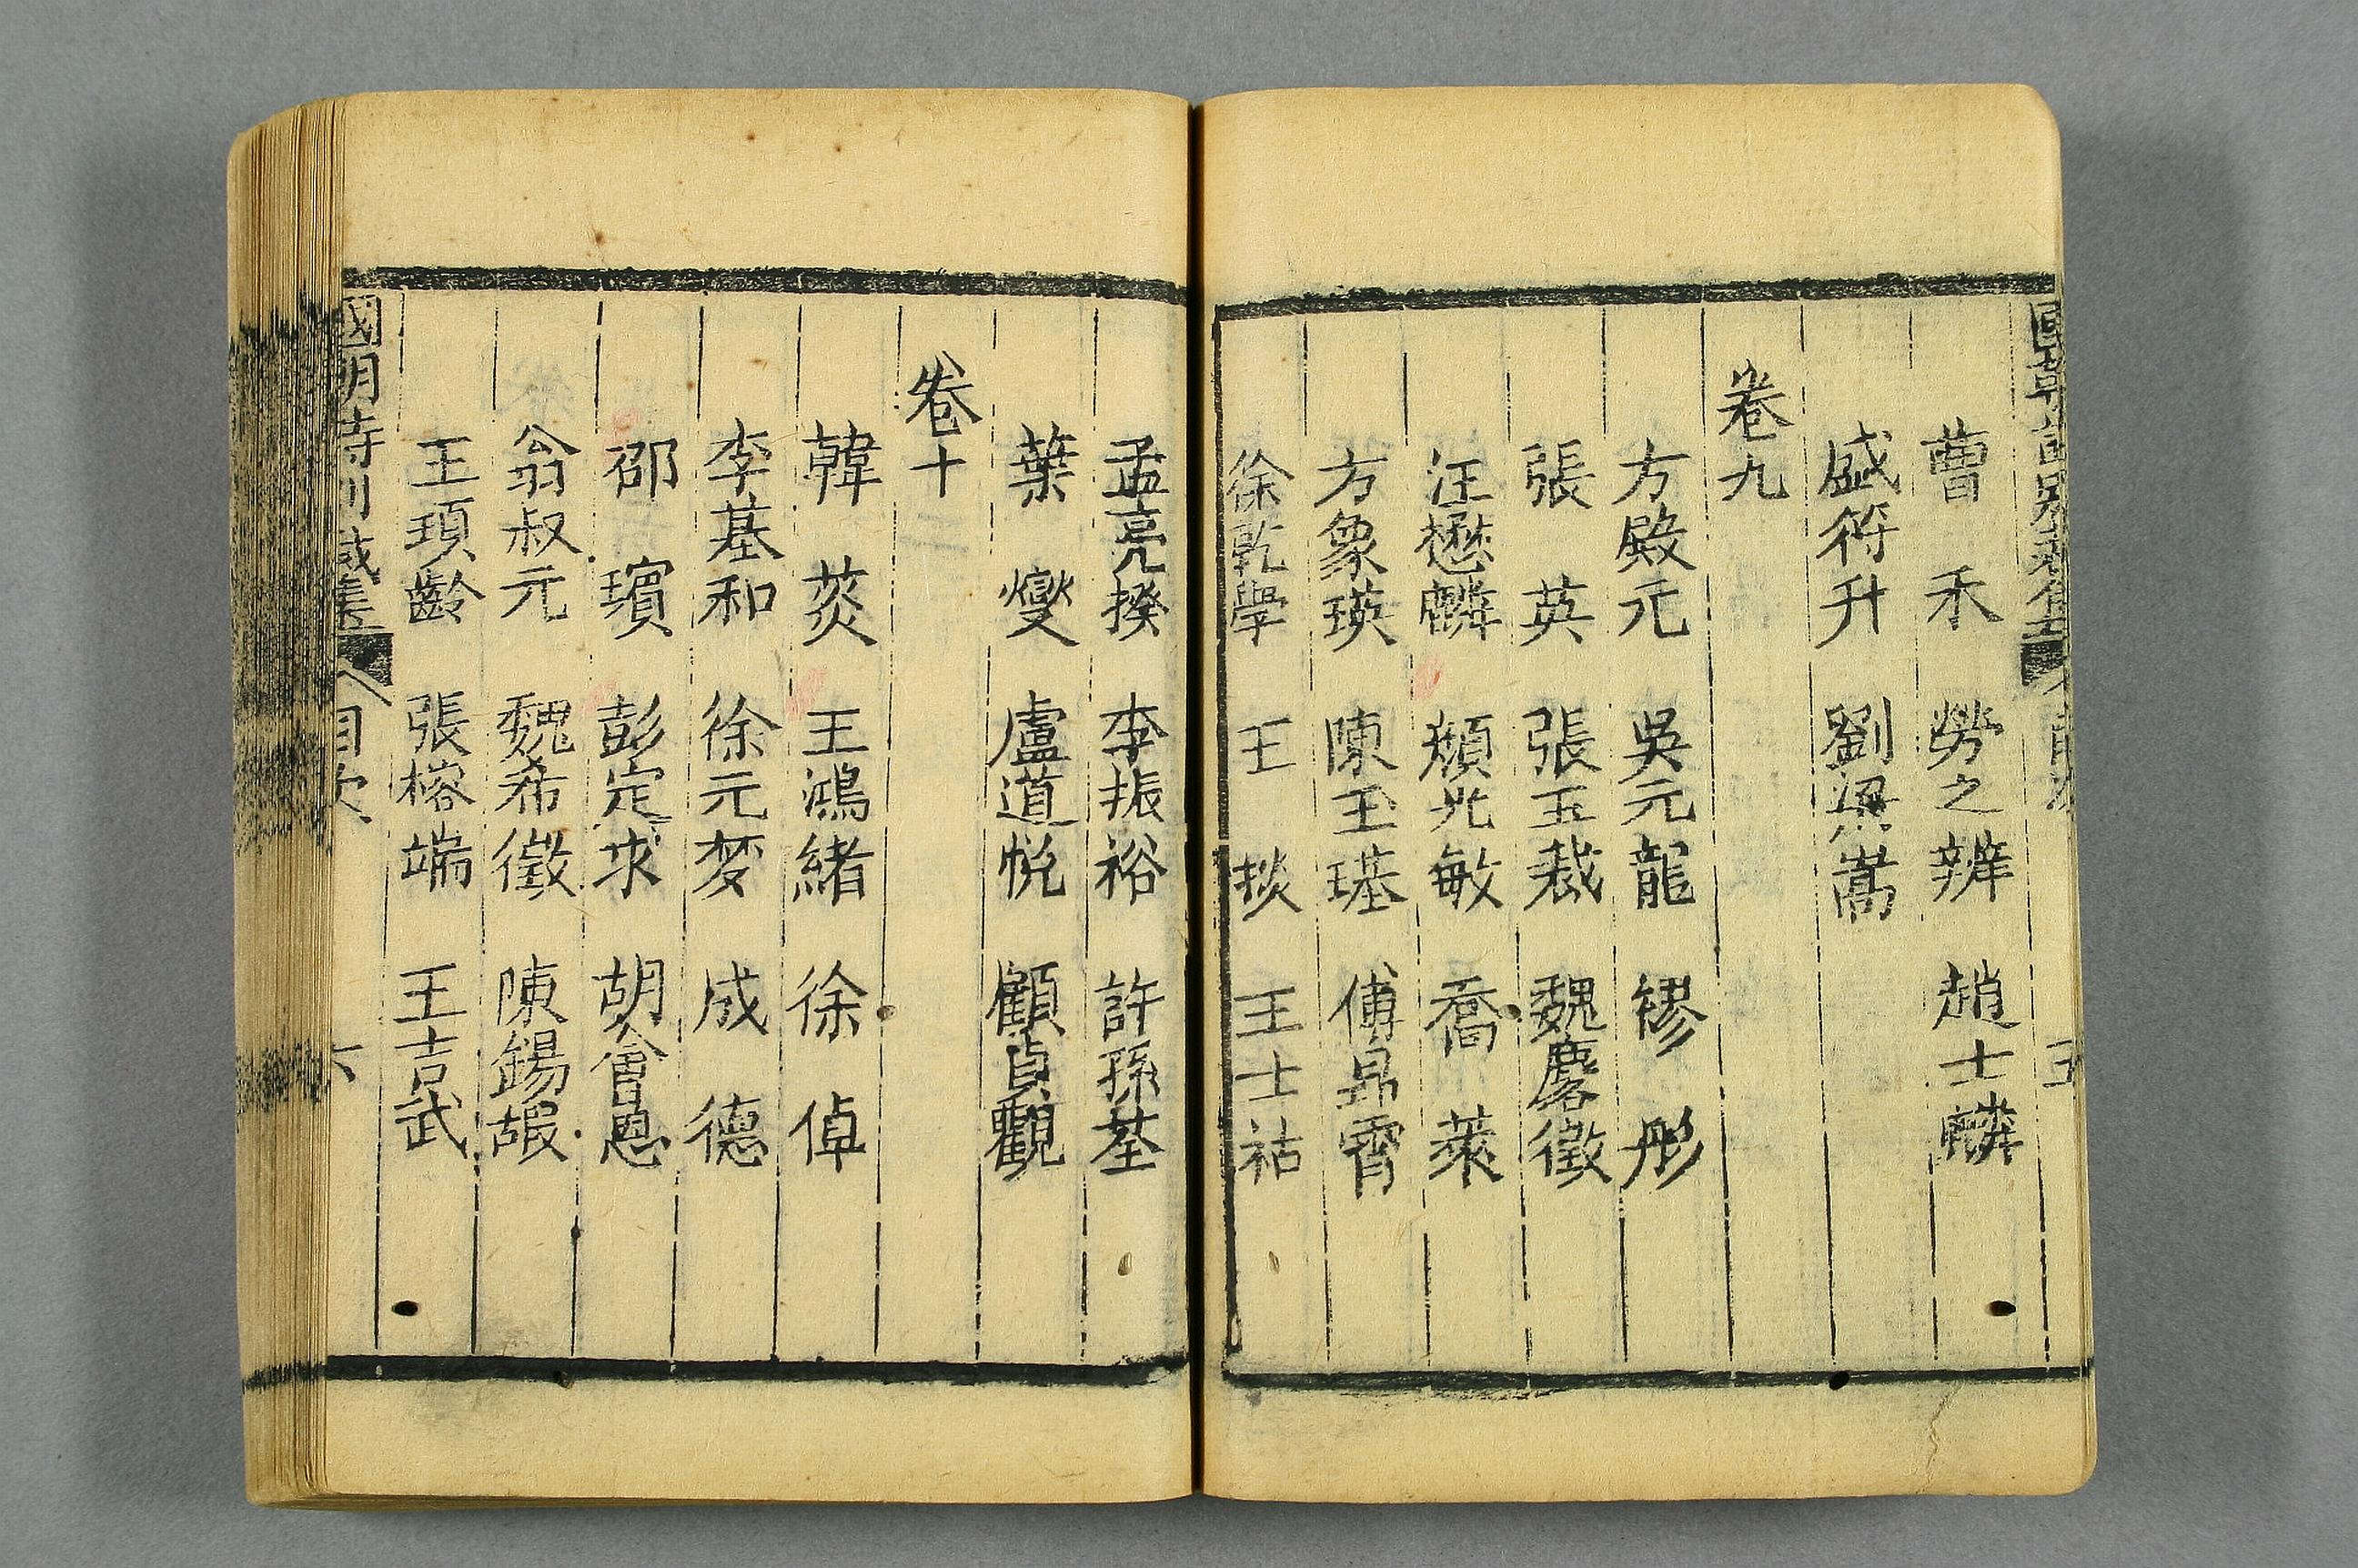 國朝詩別裁集 目次 五
曹禾 勞之辨 趙士麟
盛符升 劉梁嵩
卷九
方殿元 吳元龍 繆彤
張英 張玉裁 魏麐徵
汪懋麟 顏光敏 喬萊
方象瑛 陳玉璂 傅昂霄
徐乾學 王掞 王士祜
孟亮揆 李振裕 許孫荃
葉燮 盧道悅 顧貞觀
卷十
韓菼 王鴻緒 徐倬
李基和 徐元夢 成德
邵璸 彭定求 胡會恩
翁叔元 魏希徵 陳錫嘏
王頊齡 張榕端 王吉武
國朝詩別裁集 目次 六